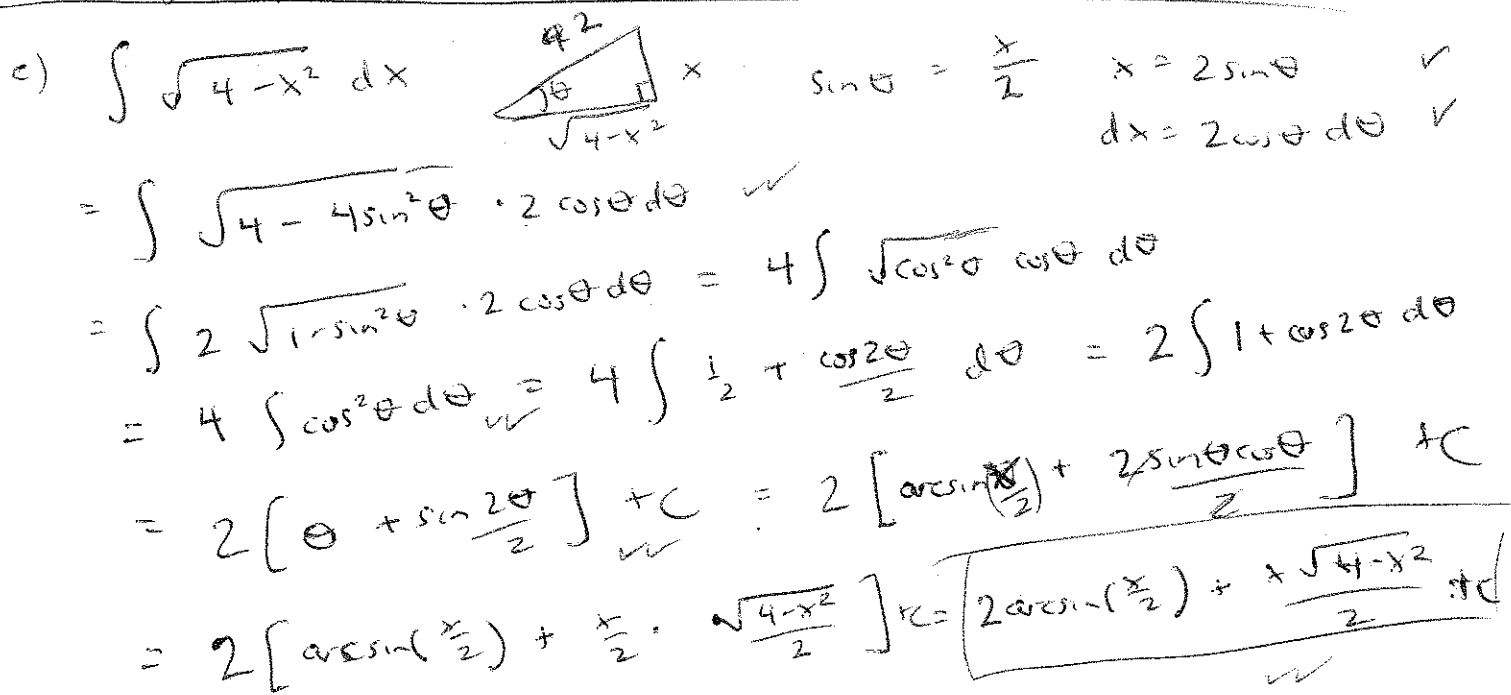 c) ∫ √(4-x²) dx   2   θ   x   √(4-x²)   sinθ = x/2   x = 2sinθ ✓
dx = 2cosθ dθ ✓
= ∫ √(4 - 4sin²θ) · 2 cosθ dθ ✓✓
= ∫ 2 √(1-sin²θ) · 2 cosθ dθ = 4 ∫ √(cos²θ) cosθ dθ
= 4 ∫ cos²θ dθ ✓✓ = 4 ∫ 1/2 + cos2θ/2 dθ = 2 ∫ 1 + cos2θ dθ
= 2 [θ + sin2θ/2] + C ✓✓ = 2 [arcsin(x/2) + 2sinθcosθ/2] + C
= 2 [arcsin(x/2) + x/2 · √(4-x²)/2] + C = 2arcsin(x/2) + x√(4-x²)/2 + C ✓✓